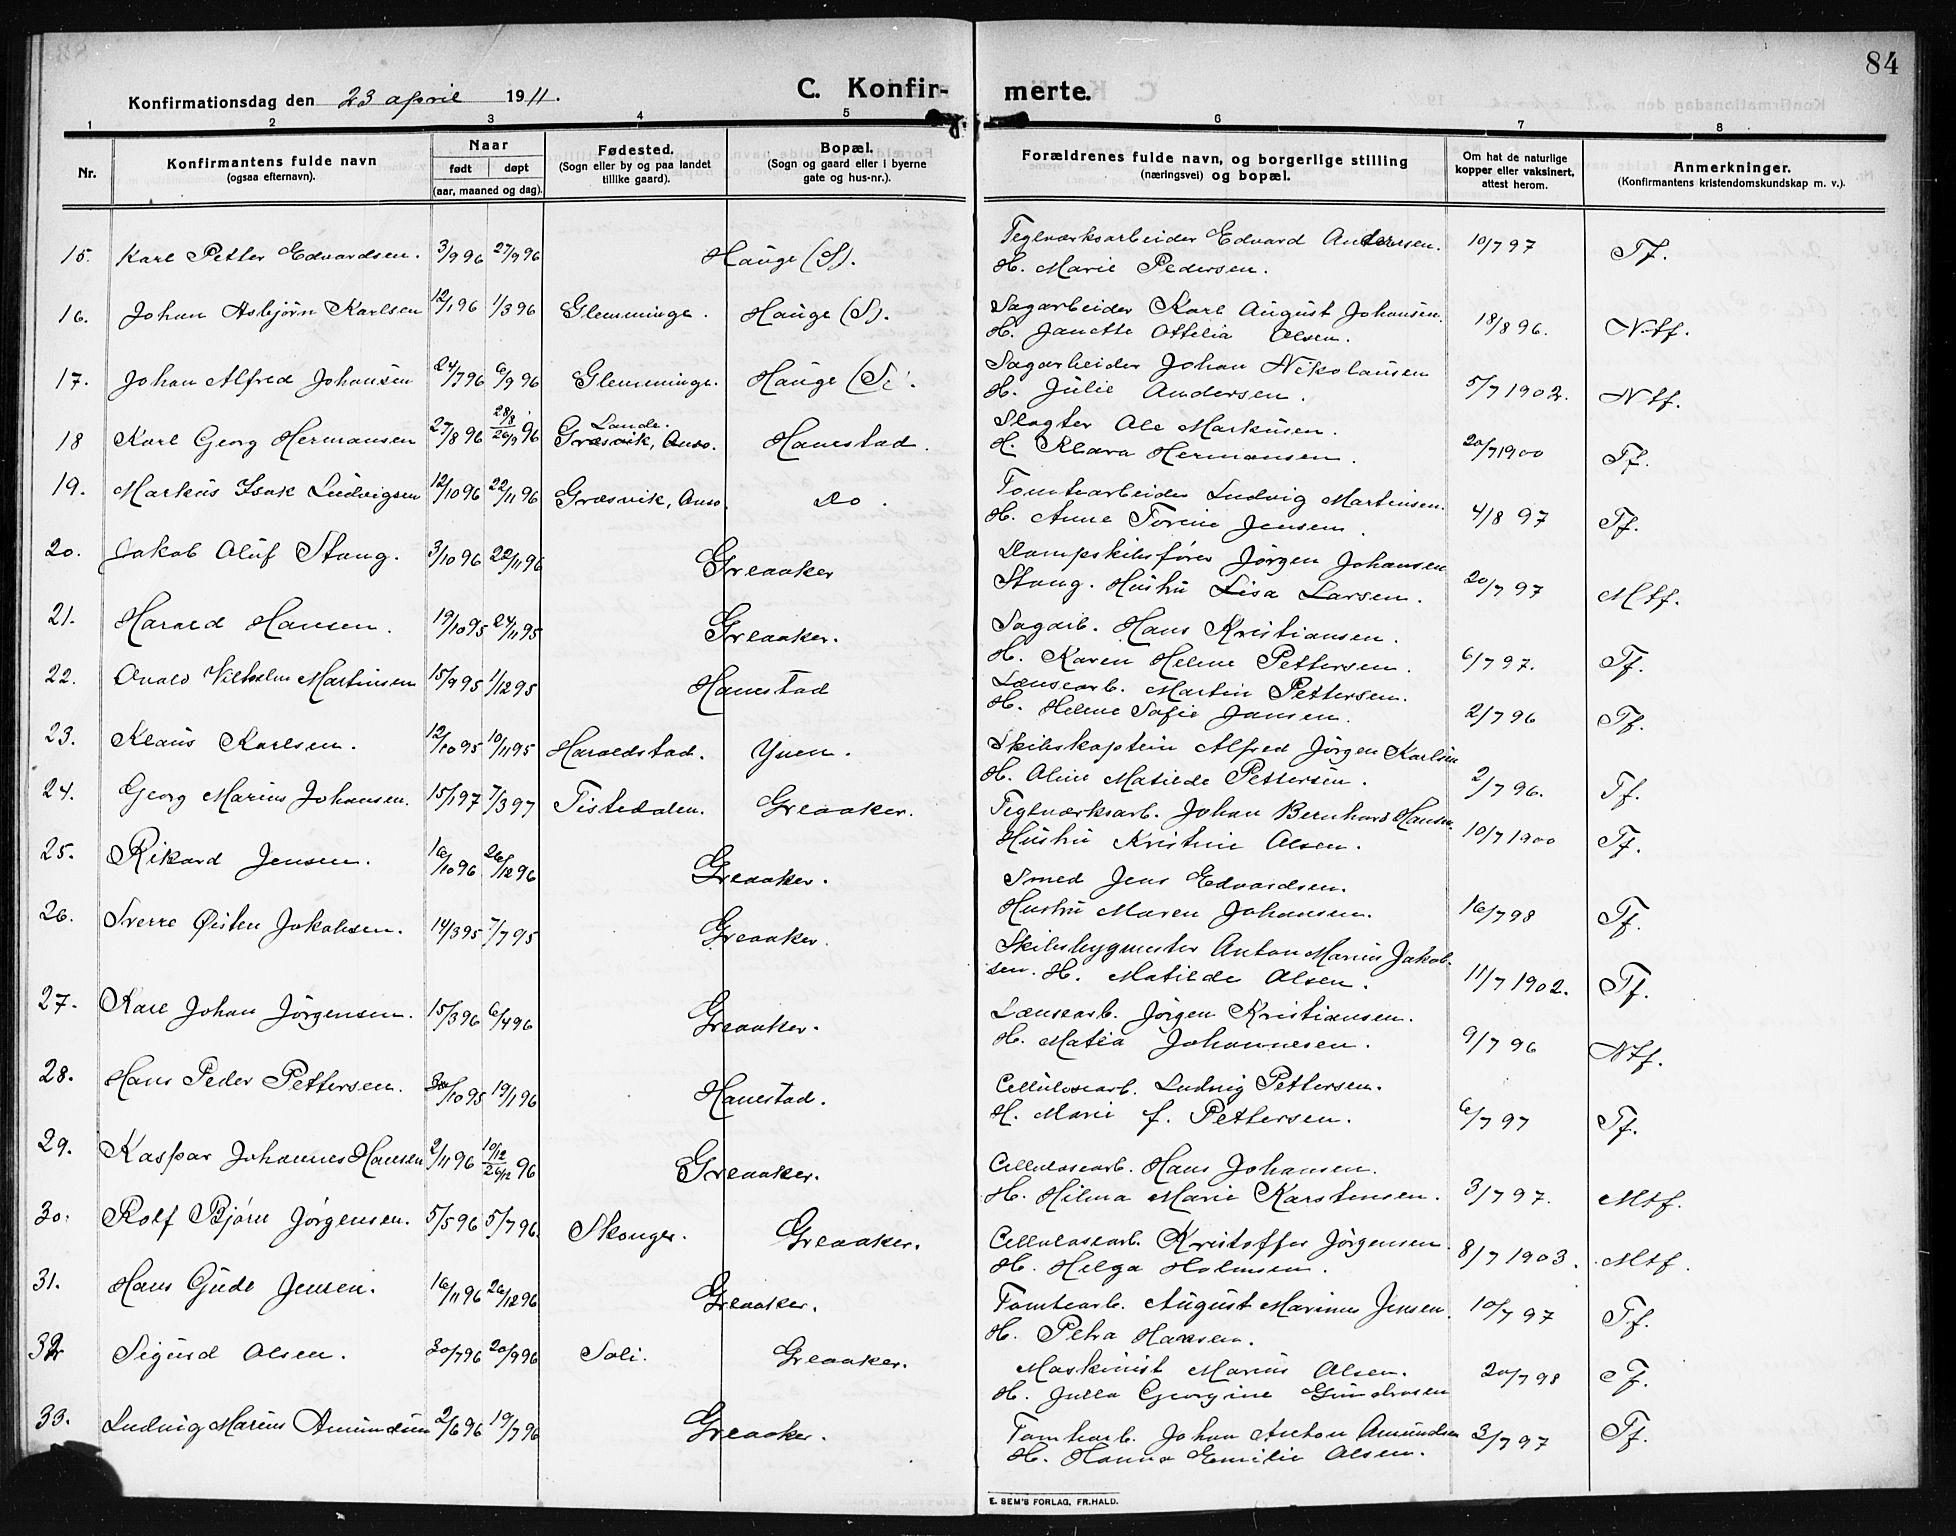 84
Konfirmationsdag den 23 april 1911.
C. Konfirmerte.
1 2 3 4 5 6 7 8
Nr.
Konfirmantens fulde navn
(ogsaa efternavn).
Naar
født døpt
(aar, maaned og dag).
Fødested.
(Sogn eller by og paa landet
tillike gaard).
Bopæl.
(Sogn og gaard eller i byerne
gate og hus-nr.).
Forældrenes fulde navn, og borgerlige stilling
(næringsvei) og bopæl.
Om hat de naturlige
kopper eller vaksinert,
attest herom.
Anmerkninger.
(Konfirmantens kristendomskundskap m. v.).
15. Karl Petter Edvardsen. 3/9 96 27/9 96 Hauge (S). Teglværksarbeider Edvard Andersen. 10/7 97 Tf.
H. Marie Pedersen.
16. Johan Asbjørn Karlsen 12/1 96 1/3 96 Glemminge. Hauge (S). Sagarbeider Karl August Johansen. 18/8 96. Ntf.
H. Janette Ottelia Olsen.
17. Johan Alfred Johansen 24/7 96 6/9 96 Glemminge. Hauge (S). Sagarbeider Johan Nikolausen 5/7 1902. Ntf.
H. Julie Andersen.
18 Karl Georg Hermansen 27/8 96 28/8 26/9 96 Lande. Græsvik, Onsø. Hanestad. Slagter Ole Markusen. 20/7 1900 Tf.
H. Klara Hermansen.
19. Markus Isak Ludvigsen 12/10 96 22/11 96 Græsvik, Onsø. Do. Tomtearbeider Ludvig Martinsen. 4/8 97 Tf.
H. Anne Torine Jensen.
20. Jakob Oluf Stang. 3/10 96 22/11 96 Greaaker Dampskibsfører Jørgen Johansen 20/7 97 Mtf.
Stang. Hustru Lisa Larsen.
21. Harald Hansen. 19/10 95 24/11 95 Greaaker. Sagarb. Hans Kristiansen. 6/7 97. Tf.
H. Karen Helene Pettersen.
22. Ovald Vilhelm Martinsen 15/9 95 1/12 95 Hanestad Lænsearb. Martin Pettersen. 2/7 96 Tf.
H. Helene Sofie Jansen.
23. Klaus Karlsen. 12/10 95 10/11 95 Haraldstad. Yven. Skibskaptein Alfred Jørgen Karlsen 2/7 96. Tf.
H. Oline Matilde Pettersen.
24. Georg Marius Johansen. 15/1 97 7/3 97 Tistedalen. Greaaker. Teglværksarb. Johan Bernhard Hansen. 10/7 1900 Tf.
Hustru Kristine Olsen.
25. Rikard Jensen. 16/10 96 26/12 96 Greaaker. Smed Jens Edvardsen. 16/7 98 Tf.
Hustru Maren Johansen.
26. Sverre Øisten Jakobsen. 14/3 95 7/7 95 Greaaker. Skibsbygmester Anton Marius Jakob- 11/7 1902. Tf.
sen. H. Matilde Olsen.
27. Karl Johan Jørgensen. 15/3 96 6/4 96 Greaaker. Lænsearb. Jørgen Kristiansen. 9/7 96 Ntf.
H. Matea Johannesen.
28. Hans Peder Pettersen. 30/10 95 19/1 96 Hanestad. Cellulosearb. Ludvig Pettersen. 6/7 97 Tf.
H. Marie f. Pettersen.
29. Kaspar Johannes Hansen 2/11 96 10/12 26/12 96 Greaaker. Cellulosearb. Hans Johansen. 3/7 97. Mtf.
H. Hilma Marie Karstensen.
30. Rolf Bjørn Jørgensen. 5/5 96 5/7 96. Skonger. Greaaker. Cellulosearb. Kristoffer Jørgensen. 8/7 1903. Mtf.
H. Helga Holmsen.
31. Hans Gude Jensen. 16/11 96 26/12 96 Greaaker. Tomtearb. August Marinus Jensen. 10/7 97 Tf.
H. Petra Hansen.
32 Sigurd Olsen. 30/7 96 20/9 96 Soli. Greaaker. Maskinist Marius Olsen. 20/7 98 Tf.
H. Julla Georgine Gundersen
33. Ludvig Marius Amundsen 2/6 96 19/7 96 Greaaker. Tomtearb. Johan Anton Amundsen 3/7 97 Tf.
H. Hanna Emilie Olsen.
E. SEM'S FORLAG, FR.HALD.